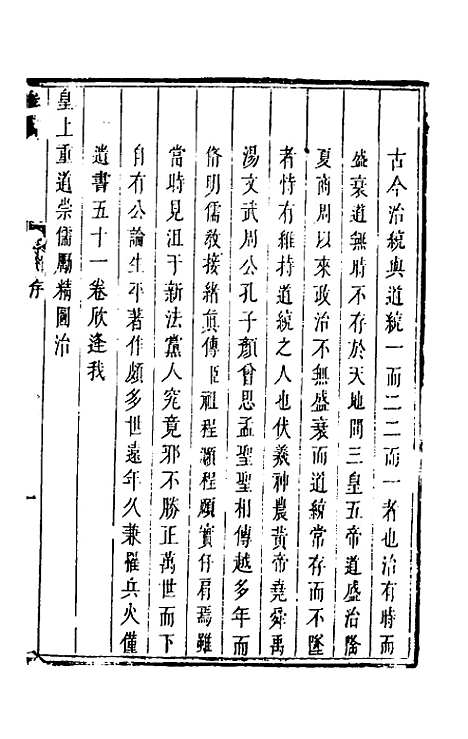 古今治統與道統一而二二而一者也治有時而
盛衰道無時不存於天地間三皇五帝道盛治隆
夏商周以來政治不無盛衰而道統常存而不墜
者恃有維持道統之人也伏羲神農黃帝堯舜禹
湯文武周公孔子顏曾思孟聖聖相傳越多年而
脩明儒教接緒眞傳臣祖程顥程頤實仔肩焉雖
當時見沮于新法黨人究竟邪不勝正萬世而下
自有公論生平著作頗多世遠年久兼罹兵火僅
遺書五十一卷欣逢我
皇上重道崇儒勵精圖治
序
一